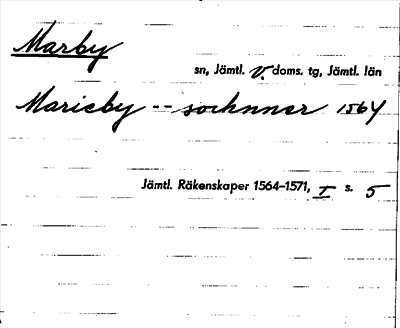 Marby
sn, Jämtl. V. doms. tg, Jämtl. län
Marieby -- sochnner 1564
Jämtl. Räkenskaper 1564–1571, I s. 5